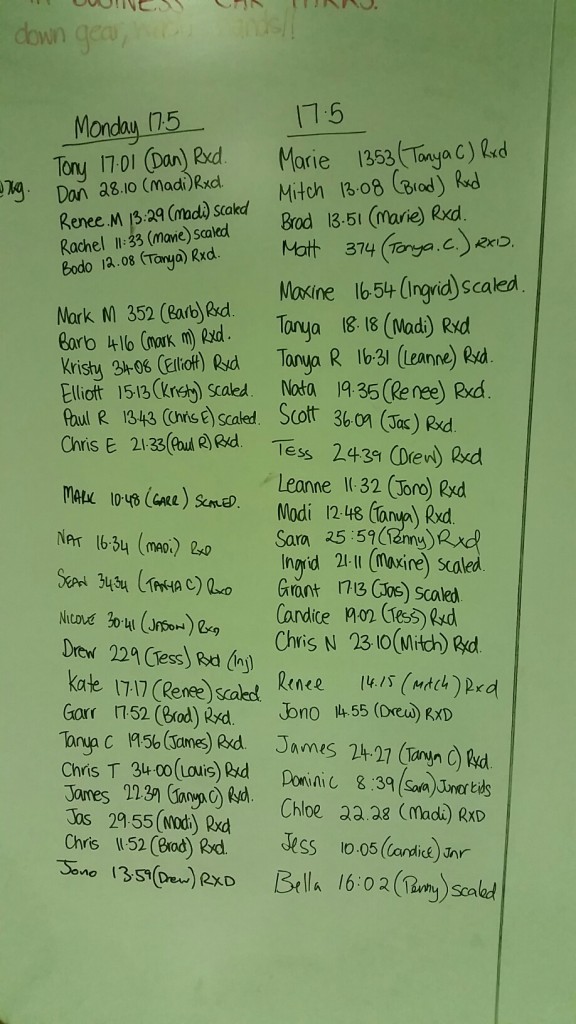 IN BUSINESS CAR PARKS.
down gear,
Monday 17.5
@7kg.
Tony 17.01 (Dan) Rxd.
Dan 28.10 (Madi) Rxd.
Renee.M 13:29 (Madi) scaled
Rachel 11:33 (Marie) scaled
Bodo 12.08 (Tanya) Rxd.
Mark M 352 (Barb) Rxd.
Barb 416 (mark m) Rxd.
Kristy 34.08 (Elliott) Rxd
Elliott 15.13 (Kristy) Scaled.
Paul R 13.43 (Chris E) scaled.
Chris E 21.33 (Paul R) Rxd.
MARK 10.48 (GARR) SCALED.
NAT 16.34 (MADI) RxD
SEAN 34.34 (TANYA C) RxD
NICOLE 30.41 (JASON) Rxd
Drew 229 (Tess) Rxd (Inj)
Kate 17.17 (Renee) scaled.
Garr 17.52 (Brad) Rxd.
Tanya C 19.56 (James) Rxd.
Chris T 34.00 (Louis) Rxd
James 22.39 (Tanya C) Rxd.
Jas 29.55 (Madi) Rxd
Chris 11.52 (Brad) Rxd.
Jono 13.59 (Drew) RXD
17.5
Marie 1353 (Tanya C) Rxd
Mitch 13.08 (Brad) Rxd
Brad 13.51 (Marie) Rxd.
Matt 374 (Tanya.C.) RXD.
Maxine 16.54 (Ingrid) scaled.
Tanya 18.18 (Madi) Rxd
Tanya R 16.31 (Leanne) Rxd.
Nata 19.35 (Renee) Rxd.
Scott 36.09 (Jas) Rxd.
Tess 24.39 (Drew) Rxd
Leanne 11.32 (Jono) Rxd
Madi 12.48 (Tanya) Rxd.
Sara 25:59 (Penny) Rxd
Ingrid 21.11 (Maxine) scaled.
Grant 17.13 (Jas) scaled.
Candice 19.02 (Tess) Rxd
Chris N 23.10 (Mitch) Rxd.
Renee 14.15 (Mitch) Rxd
Jono 14.55 (Drew) RXD
James 24.27 (Tanya C) Rxd.
Dominic 8:39 (Sara) Junior kids
Chloe 22.28 (Madi) RXD
Jess 10.05 (Candice) Jnr
Bella 16:02 (Penny) scaled